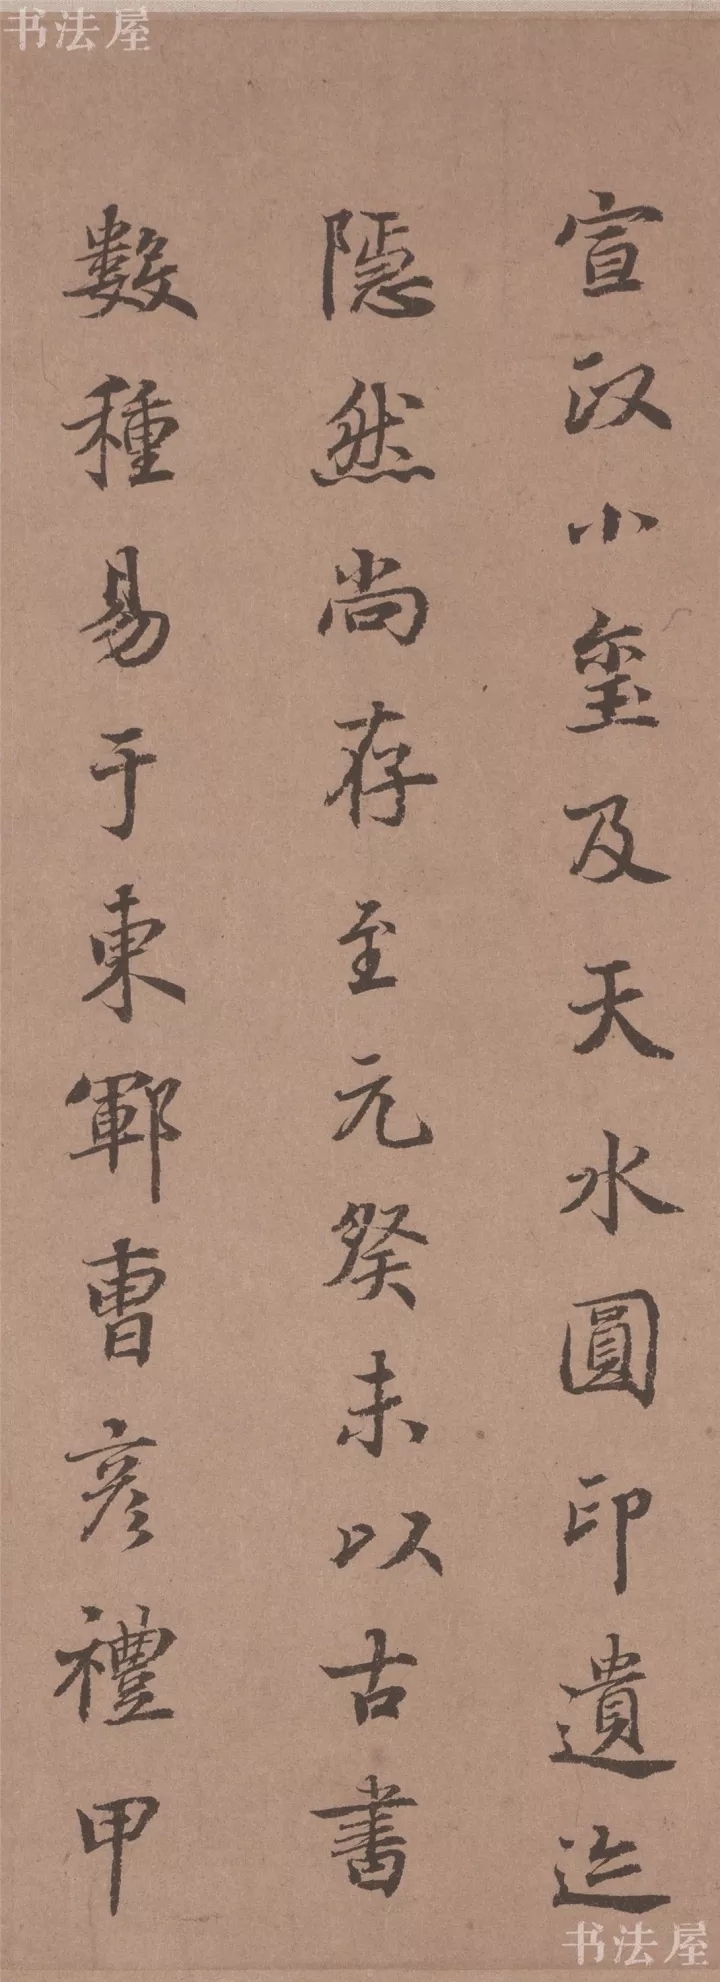 书法屋
宣政小璽及天水圓印遺迹
隱然尚存至元癸未以古書
數種易于東鄆曹彦禮甲
书法屋